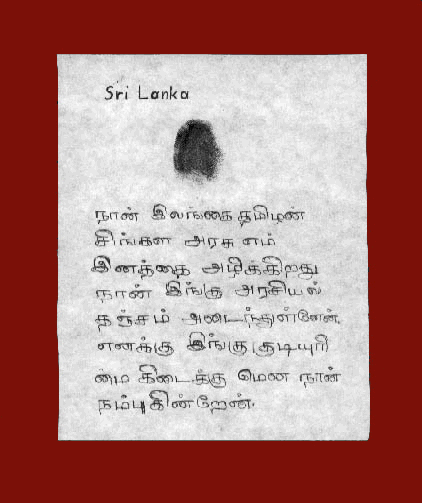 Sri Lanka
நான் இலங்கை தமிழன்
சிங்கள அரசு எம்
இனத்தை அழிக்கிறது
நான் இங்கு அரசியல்
தஞ்சம் அடைந்துள்ளேன்.
எனக்கு இங்கு குடியுரி
மை கிடைக்கு மென நான்
நம்புகின்றேன்.